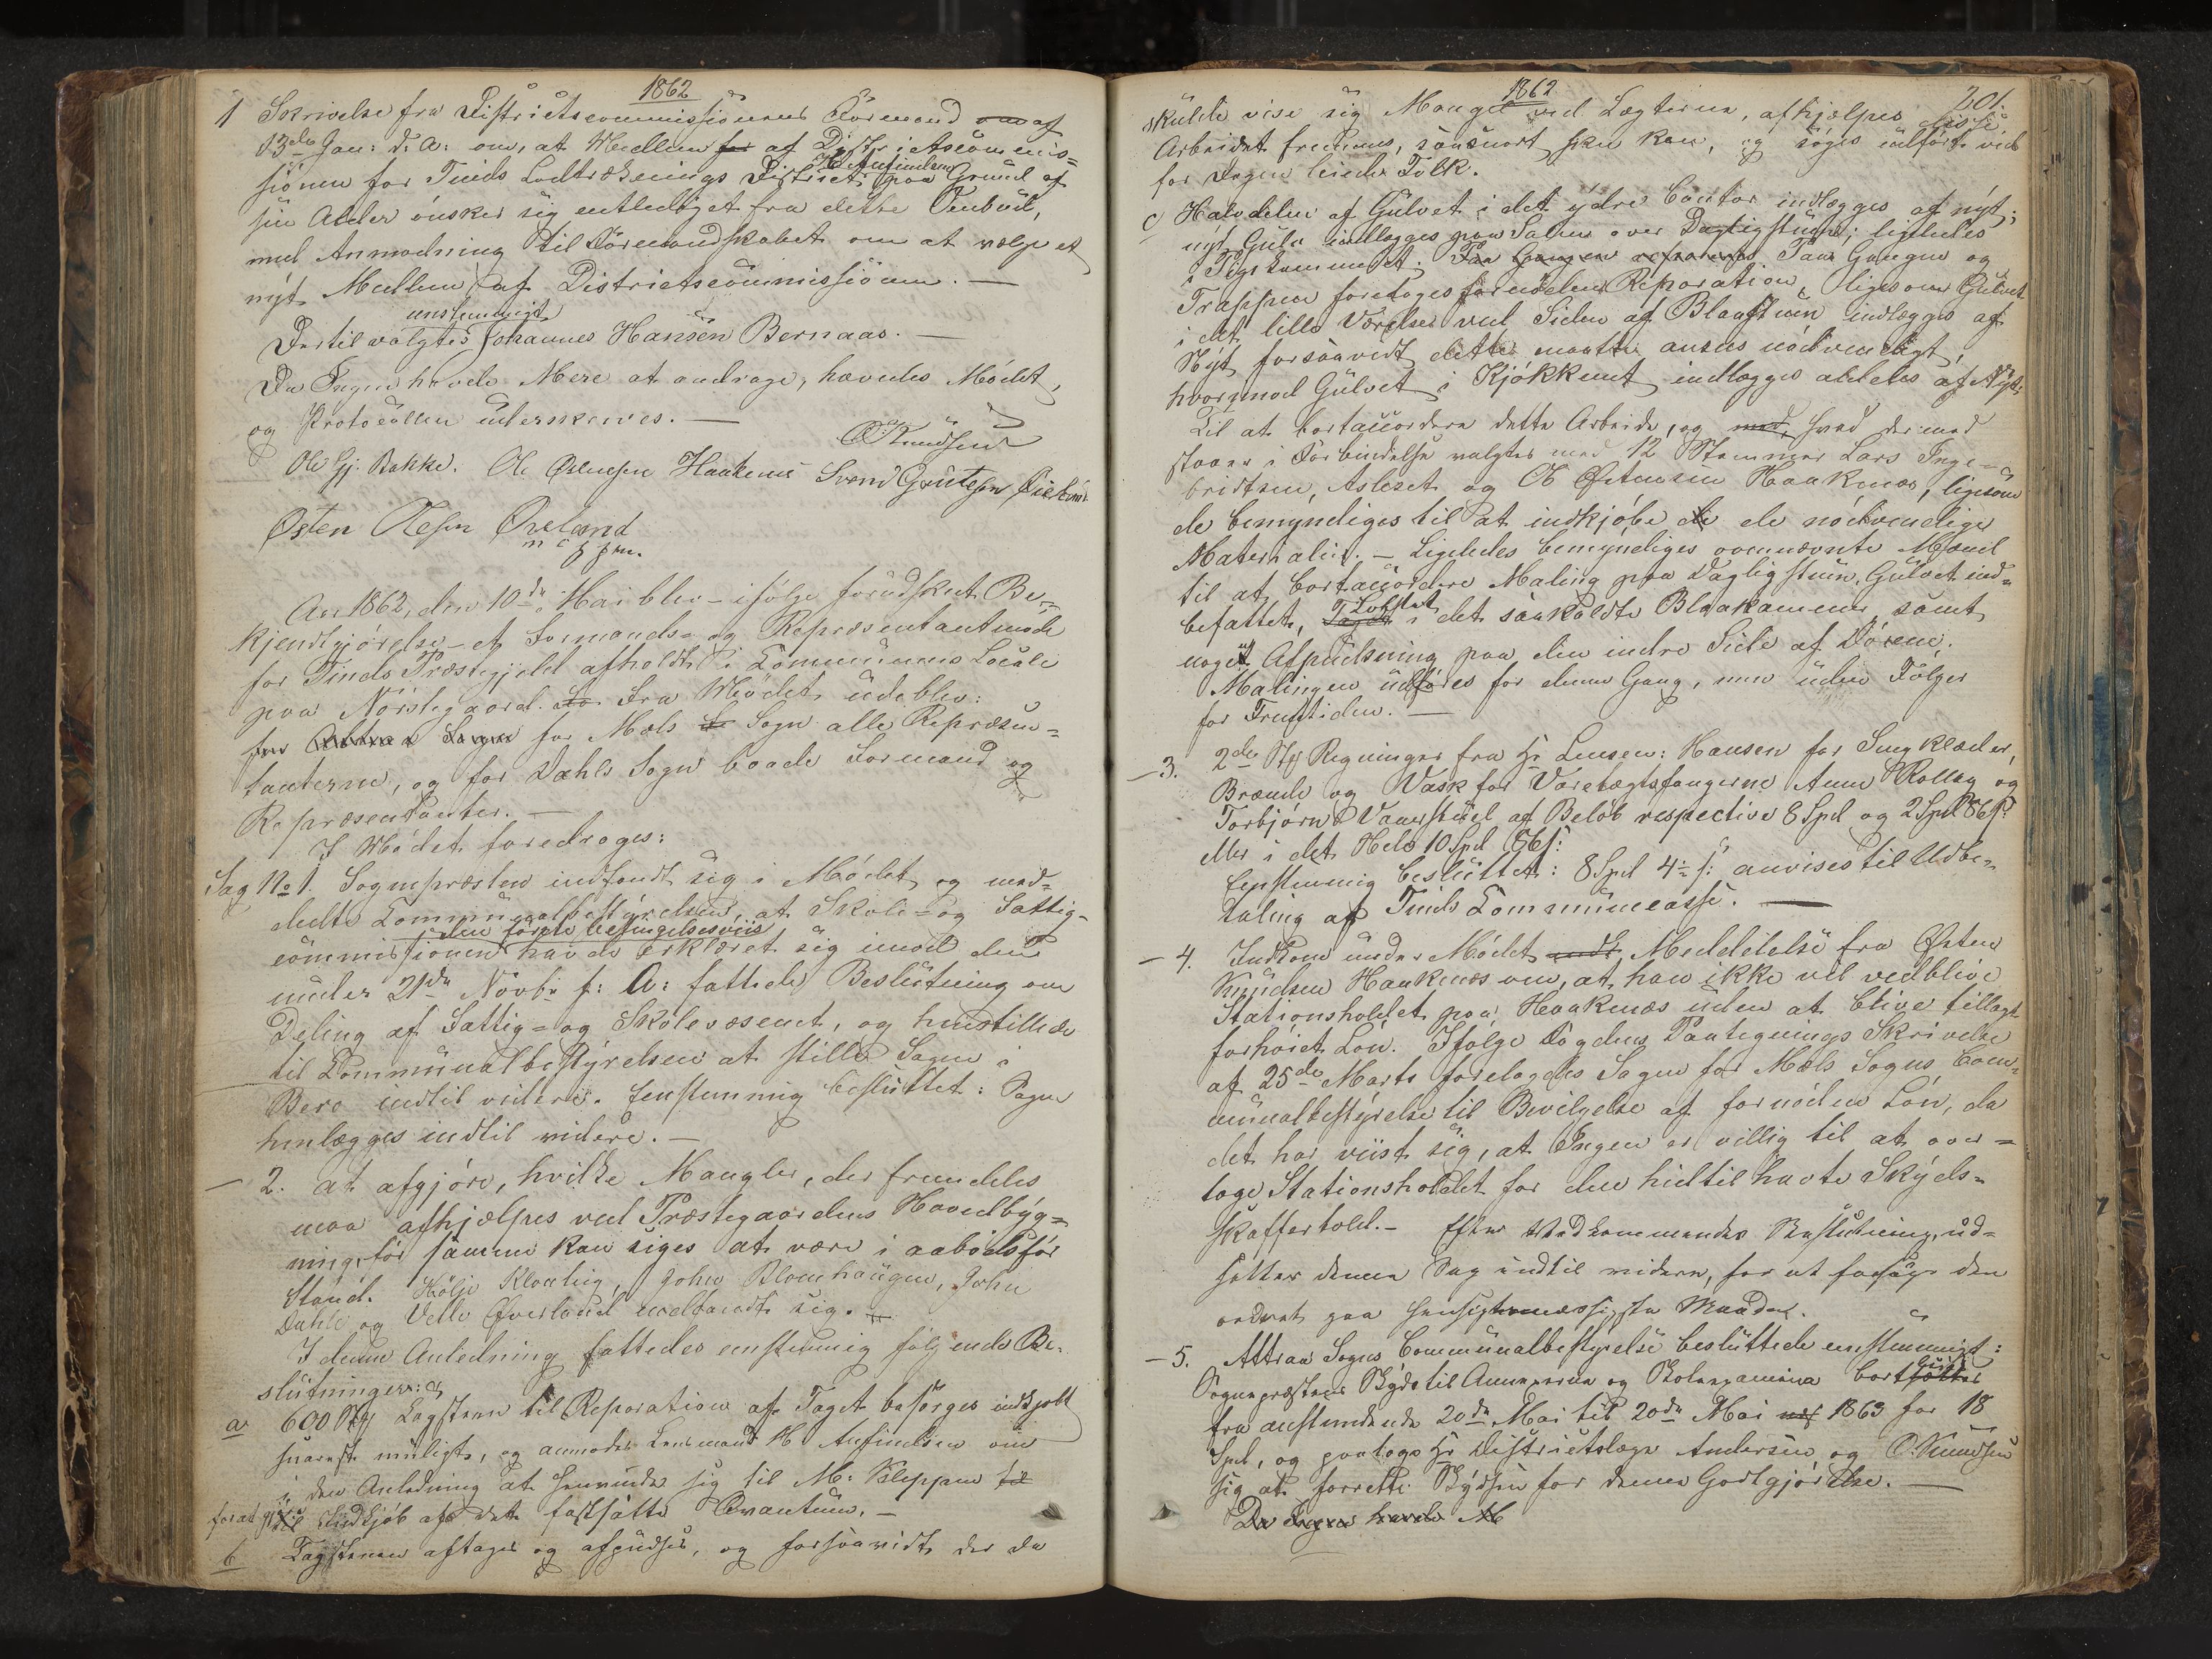 1862
1 Skrivelse fra Districtscommissionens Formand af
13de Jan: d: A: om, at Medlem af Districtscommis=
H. Anfindsen
sionen for Tinds Lodtræknings District paa Grund af
sin Alder ønsker sig entlediget fra dette Ombud,
med Anmodning til Formandskabet om at vælge et
nyt Medlem af Districtscommissionen. —
enstemmigt
Dertil valgtes Johannes Hansen Bernaas. —
Da Ingen havde Mere at andrage, hævedes Mødet,
og Protocollen underskrives. —
O Knudsen
Ole Gj. Bakke. Ole Østensen Haakenæs Svend Gøutesen
Østen Olesen Øveland
m f p.
Aar 1862, den 10de Mai blev – ifølge forudskeet Be=
kjendtgjørelse – et Formands= og Repræsentantmøde
for Tinds Præstegjeld afholdt i Communens Locale
paa Nørstegaard. Fra Mødet udeblev:
for Mæls Sogn alle Repræsen=
tanterne, og for Dahls Sogn baade Formand og
Repræsentanter. —
I Mødet foredroges:
Sag No 1. Sognepræsten indfandt sig i Mødet og med=
deelte Communalbestyrelsen, at Skole= og Fattig=
den første betingelsesviis
commissionen havde erklæret sig imod den
under 21de Novbr f: A: fattede Beslutning om
Deling af Fattig= og Skolevæsenet, og henstillede
til Communalbestyrelsen at stille Sagen i
Bero indtil videre. Eenstemmig besluttet: Sagen
henlægges indtil videre. —
— 2. at afgjøre, hvilke Mangler, der fremdeles
maa afhjælpes ved Præstegaardens Hovedbyg=
ning, før samme kan siges at være i aabodsfør
Stand. Hølje Kloaling, John Blomhaugen, John
Dahle og Velle Øverland indfandt sig. —
I denne Anledning fattedes enstemmig følgende Be=
slutninger:
a 600 Stk Tagsteen til Reparation af Taget besørges indkjøbt
snarest muligt, og anmodes Lensmand H Anfindsen om
i den Anledning at henvende sig til M: Kleppen
for at gjøre Indkjøb af det fastsatte Qvantum. —
b Tagstenen aftages og afpudses, og forsaavidt der da
1862
201.
skulde vise sig Mangel ved Lægterne, afhjælpes disse.
Arbeidet fremmes, saasnart skee kan, og søges udført ved
for Dagen leiede Folk.
c Halvdelen af Gulvet i det ydre Contor indlægges af nyt;
nyt Gulv indlægges paa Salen over Dagligstuen; ligeledes
i Pigekammeret. Paa Gangen og
Trappen foretages fornøden Reparation, ligesom Gulvet
i det lille Værelse ved Siden af Blaastuen indlægges af
Nyt forsaavidt dette maatte ansees nødvendigt,
hvorimod Gulvet i Kjøkkenet indlægges aldeles af Nyt.
Til at bortaccordere dette Arbeide, og hvad dermed
staaer i Forbindelse valgtes med 12 Stemmer Lars Inge=
bridtsen, Asleset og Ole Østensen Haakenæs, ligesom
de bemyndiges til at indkjøbe de nødvendige
Materialier. – Ligeledes bemyndiges ovennævnte Mænd
til at bortaccordere Maling paa Dagligstuen, Gulvet ind=
befattet, Loftet i det saakaldte Blaakammer, samt
noget Afpudsning paa den indre Side af Dørene.
Malingen udføres for denne Gang, men uden Følger
for Fremtiden. —
— 3. 2de Stk Regninger fra Hr Lensm: Hansen for Sengklæder,
Brænde og Vask for Varetægtsfangerne Anne Rollag og
Torbjørn Vaaerstuel af Beløb respective 8 Spd og 2 Spd 86 s:
eller i det Hele 10 Spd 86 s:
Eenstemmig besluttet: 8 Spd 4 s: anvises til Udbe=
taling af Tinds Communecasse. —
— 4. Indkom under Mødet Meddelelse fra Østen
Knudsen Haakenæs om, at han ikke vil vedblive
Stationsholdet paa Haakenæs uden at blive tillagt
forhøiet Løn. Ifølge Fogdens Paategnings Skrivelse
af 25de Marts forelagdes Sagen for Mæls Sogns Com=
munalbestyrelse til Bevilgelse af fornøden Løn, da
det har viist sig, at Ingen er villig til at over=
tage Stationsholdet for den hidtil havte Skyds=
skaffertold. – Efter Vedkommendes Beslutning ud=
sættes denne Sag indtil videre, for at forsøge den
ordnet paa hensigtsmæssigste Maade.
— 5. Attraa Sogns Communalbestyrelse besluttede enstemmigt:
Sognepræstens Skyds til Annexerne og Skoleexamina bort
fra anstundende 20de Mai til 20de Mai 1863 for 18
Spd, og paatoge Hr Districtslæge Andersen og O. Knudsen
sig at forrette Skydsen for denne Godtgjørelse. —
Da Ingen havde M